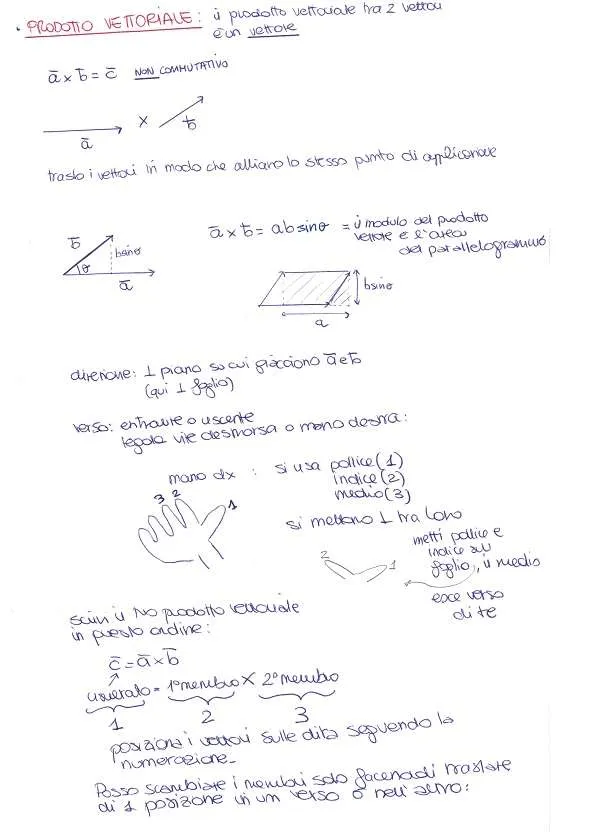 · PRODOTTO VETTORIALE: il prodotto vettoriale tra 2 vettori
è un vettore
a̅ x b̅ = c̅ NON COMMUTATIVO
a̅ x b̅
traslo i vettori in modo che abbiano lo stesso punto di applicazione
a̅ x b̅ = absinθ = il modulo del prodotto
vettore è l'area
del parallelogramma
b̅ bsinθ
θ a̅
bsinθ
a
direzione: ⊥ piano su cui giacciono a̅ e b̅
(qui ⊥ foglio)
verso: entrante o uscente
regola vite destrorsa o mano destra:
mano dx : si usa pollice (1)
indice (2)
medio (3)
3 2 1
si mettono ⊥ tra loro
2 1
metti pollice e
indice sul
foglio, il medio
esce verso
di te
scrivi il tuo prodotto vettoriale
in questo ordine:
c̅ = a̅ x b̅
risultato = 1° membro X 2° membro
1 2 3
posiziona i vettori sulle dita seguendo la
numerazione_
Posso scambiare i membri solo facendoli traslare
di 1 posizione in un verso o nell'altro: